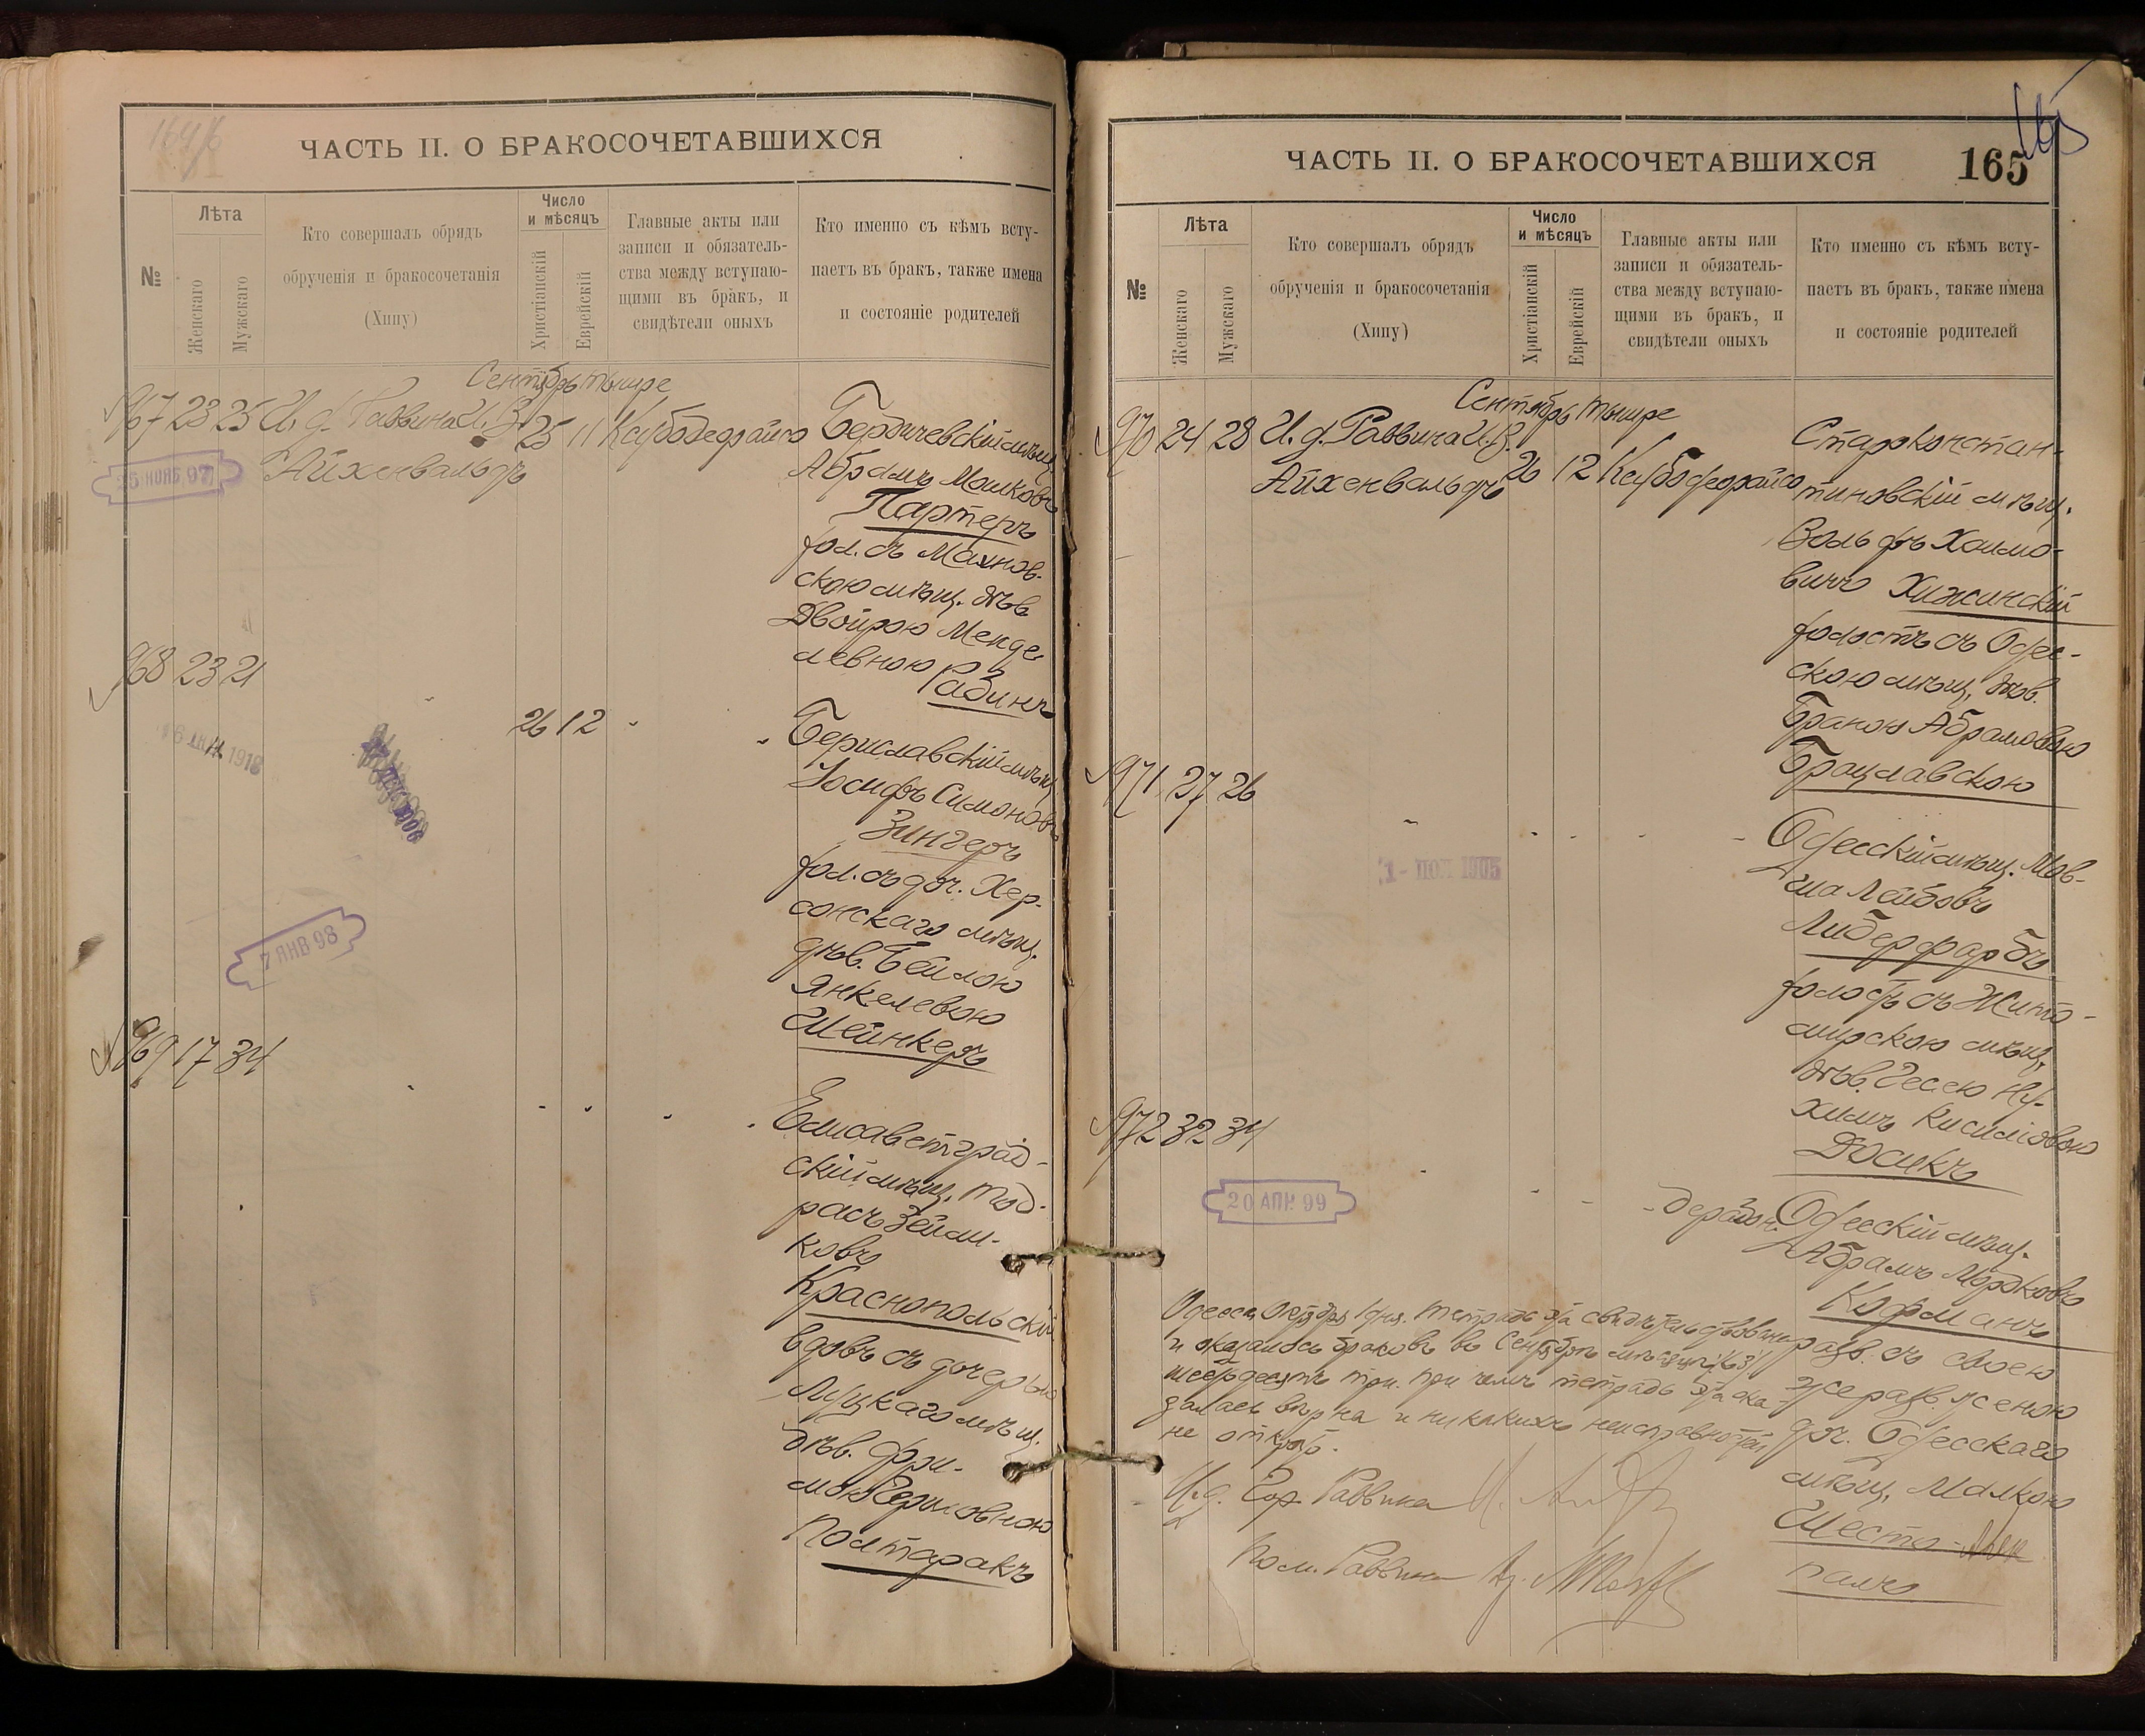 164/б
ЧАСТЬ II. О БРАКОСОЧЕТАВШИХСЯ
№
Лѣта
Женскаго
Мужскаго
Кто совершалъ обрядъ
обрученія и бракосочетанія
(Хипу)
Число
и мѣсяцъ
Христіанскій
Еврейскій
Главные акты или
записи и обязатель-
ства между вступаю-
щими въ бракъ, и
свидѣтели оныхъ
Кто именно съ кѣмъ всту-
паетъ въ бракъ, также имена
и состояніе родителей
Сентябрь тишре
967 23 25 И. д. Раввина И. В. 25 11 Ксубо дерайсо
Айхенвальдъ
25 НОЯБ 97
Бердичевскій мѣщ.
Абрамъ Мошковъ
Партеръ
хол. съ Махнов-
скою мѣщ. дѣв.
Двойрою Менде-
левною Рабинъ
968 23 21
26 12
1918
7 ЯНВ 98
Бериславскій мѣщ.
Іосифъ Симоновъ
Зингеръ
хол. съ доч. Хер-
сонскаго мѣщ.
дѣв. Бейлою
Янкелевою
Шейнкеръ
969 17 34
Елисаветград-
скій мѣщ. Тод-
расъ Зейли-
ковъ
Краснопольскій
вдовъ съ дочерью
Луцкаго мѣщ.
дѣв. Фри-
мою Бериковною
Полтаракъ
165
ЧАСТЬ II. О БРАКОСОЧЕТАВШИХСЯ 165
№
Лѣта
Женскаго
Мужскаго
Кто совершалъ обрядъ
обрученія и бракосочетанія
(Хипу)
Число
и мѣсяцъ
Христіанскій
Еврейскій
Главные акты или
записи и обязатель-
ства между вступаю-
щими въ бракъ, и
свидѣтели оныхъ
Кто именно съ кѣмъ всту-
паетъ въ бракъ, также имена
и состояніе родителей
Сентябрь тишре
970 24 28 И. д. Раввина И. В.
Айхенвальдъ 26 12 Ксубо дерайсо
Староконстан-
тиновскій мѣщ.
Вольфъ Хаимо-
вичъ Хижинскій
холостъ съ Одес-
скою мѣщ. дѣв.
Браною Абрамовою
Брацлавскою
971 27 26
1905
Одесскій мѣщ. Мов-
ша Лейбовъ
Либерфарбъ
холостъ съ Жито-
мирскою мѣщ.
дѣв. Гесею Ну-
химъ Кисилевою
Дюсикъ
972 32 34
20 АПР. 99
Одесскій мѣщ.
Абрамъ Мордковъ
Кофманъ
разв. съ своею
же разв. женою
доч. Одесскаго
мѣщ. Малкою
Шесто-
палъ
Одесса, Октября 1 дня. Тетрадь эта свидѣтельствована
и оказалось браковъ въ Сентябрѣ мѣсяцѣ /63/
шестьдесятъ три. При чемъ тетрадь эта ока-
залась вѣрна и никакихъ неисправностей
не открыто.
И. д. Гор. Раввина
Пом. Раввина